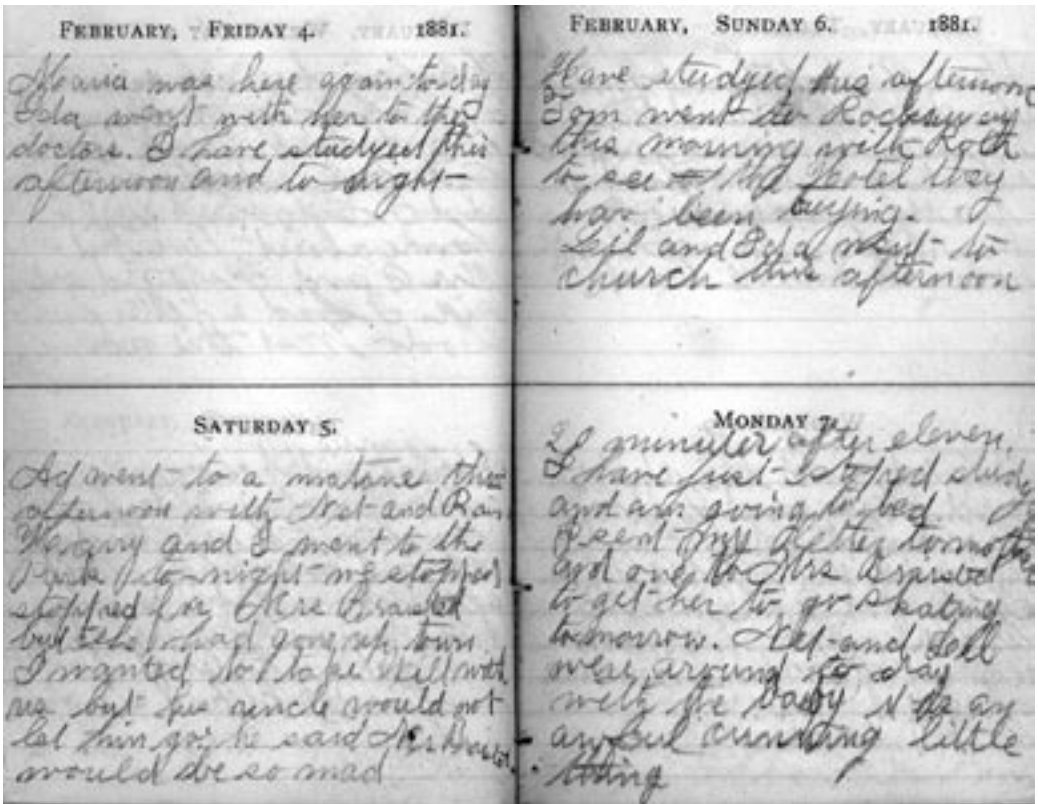 FEBRUARY, FRIDAY 4. 1881.
Maria was here again to day
Ida went with her to the
doctors. I have studyed this
afternoon and to night
SATURDAY 5.
Ad went to a matanee this
afternoon with Net and
and I went to the
Park to-night we stopped
stopped for Mrs
but she had gone up town
I wanted to take Will with
us but his uncle would not
let him go, he said Mrs
would be so mad
FEBRUARY, SUNDAY 6. 1881.
Have studyed this afternoon
Tom went to Rockaway
this morning with Roth
to see the Hotel they
have been buying.
Lil and Ida went to
church this afternoon
MONDAY 7.
minutes after eleven.
I have just stopped study
and am going to bed
I sent my letter to
and one to Mrs
to get her to go skating
tomorrow. Net and
were around to day
with the baby it is an
awful cunning little
thing